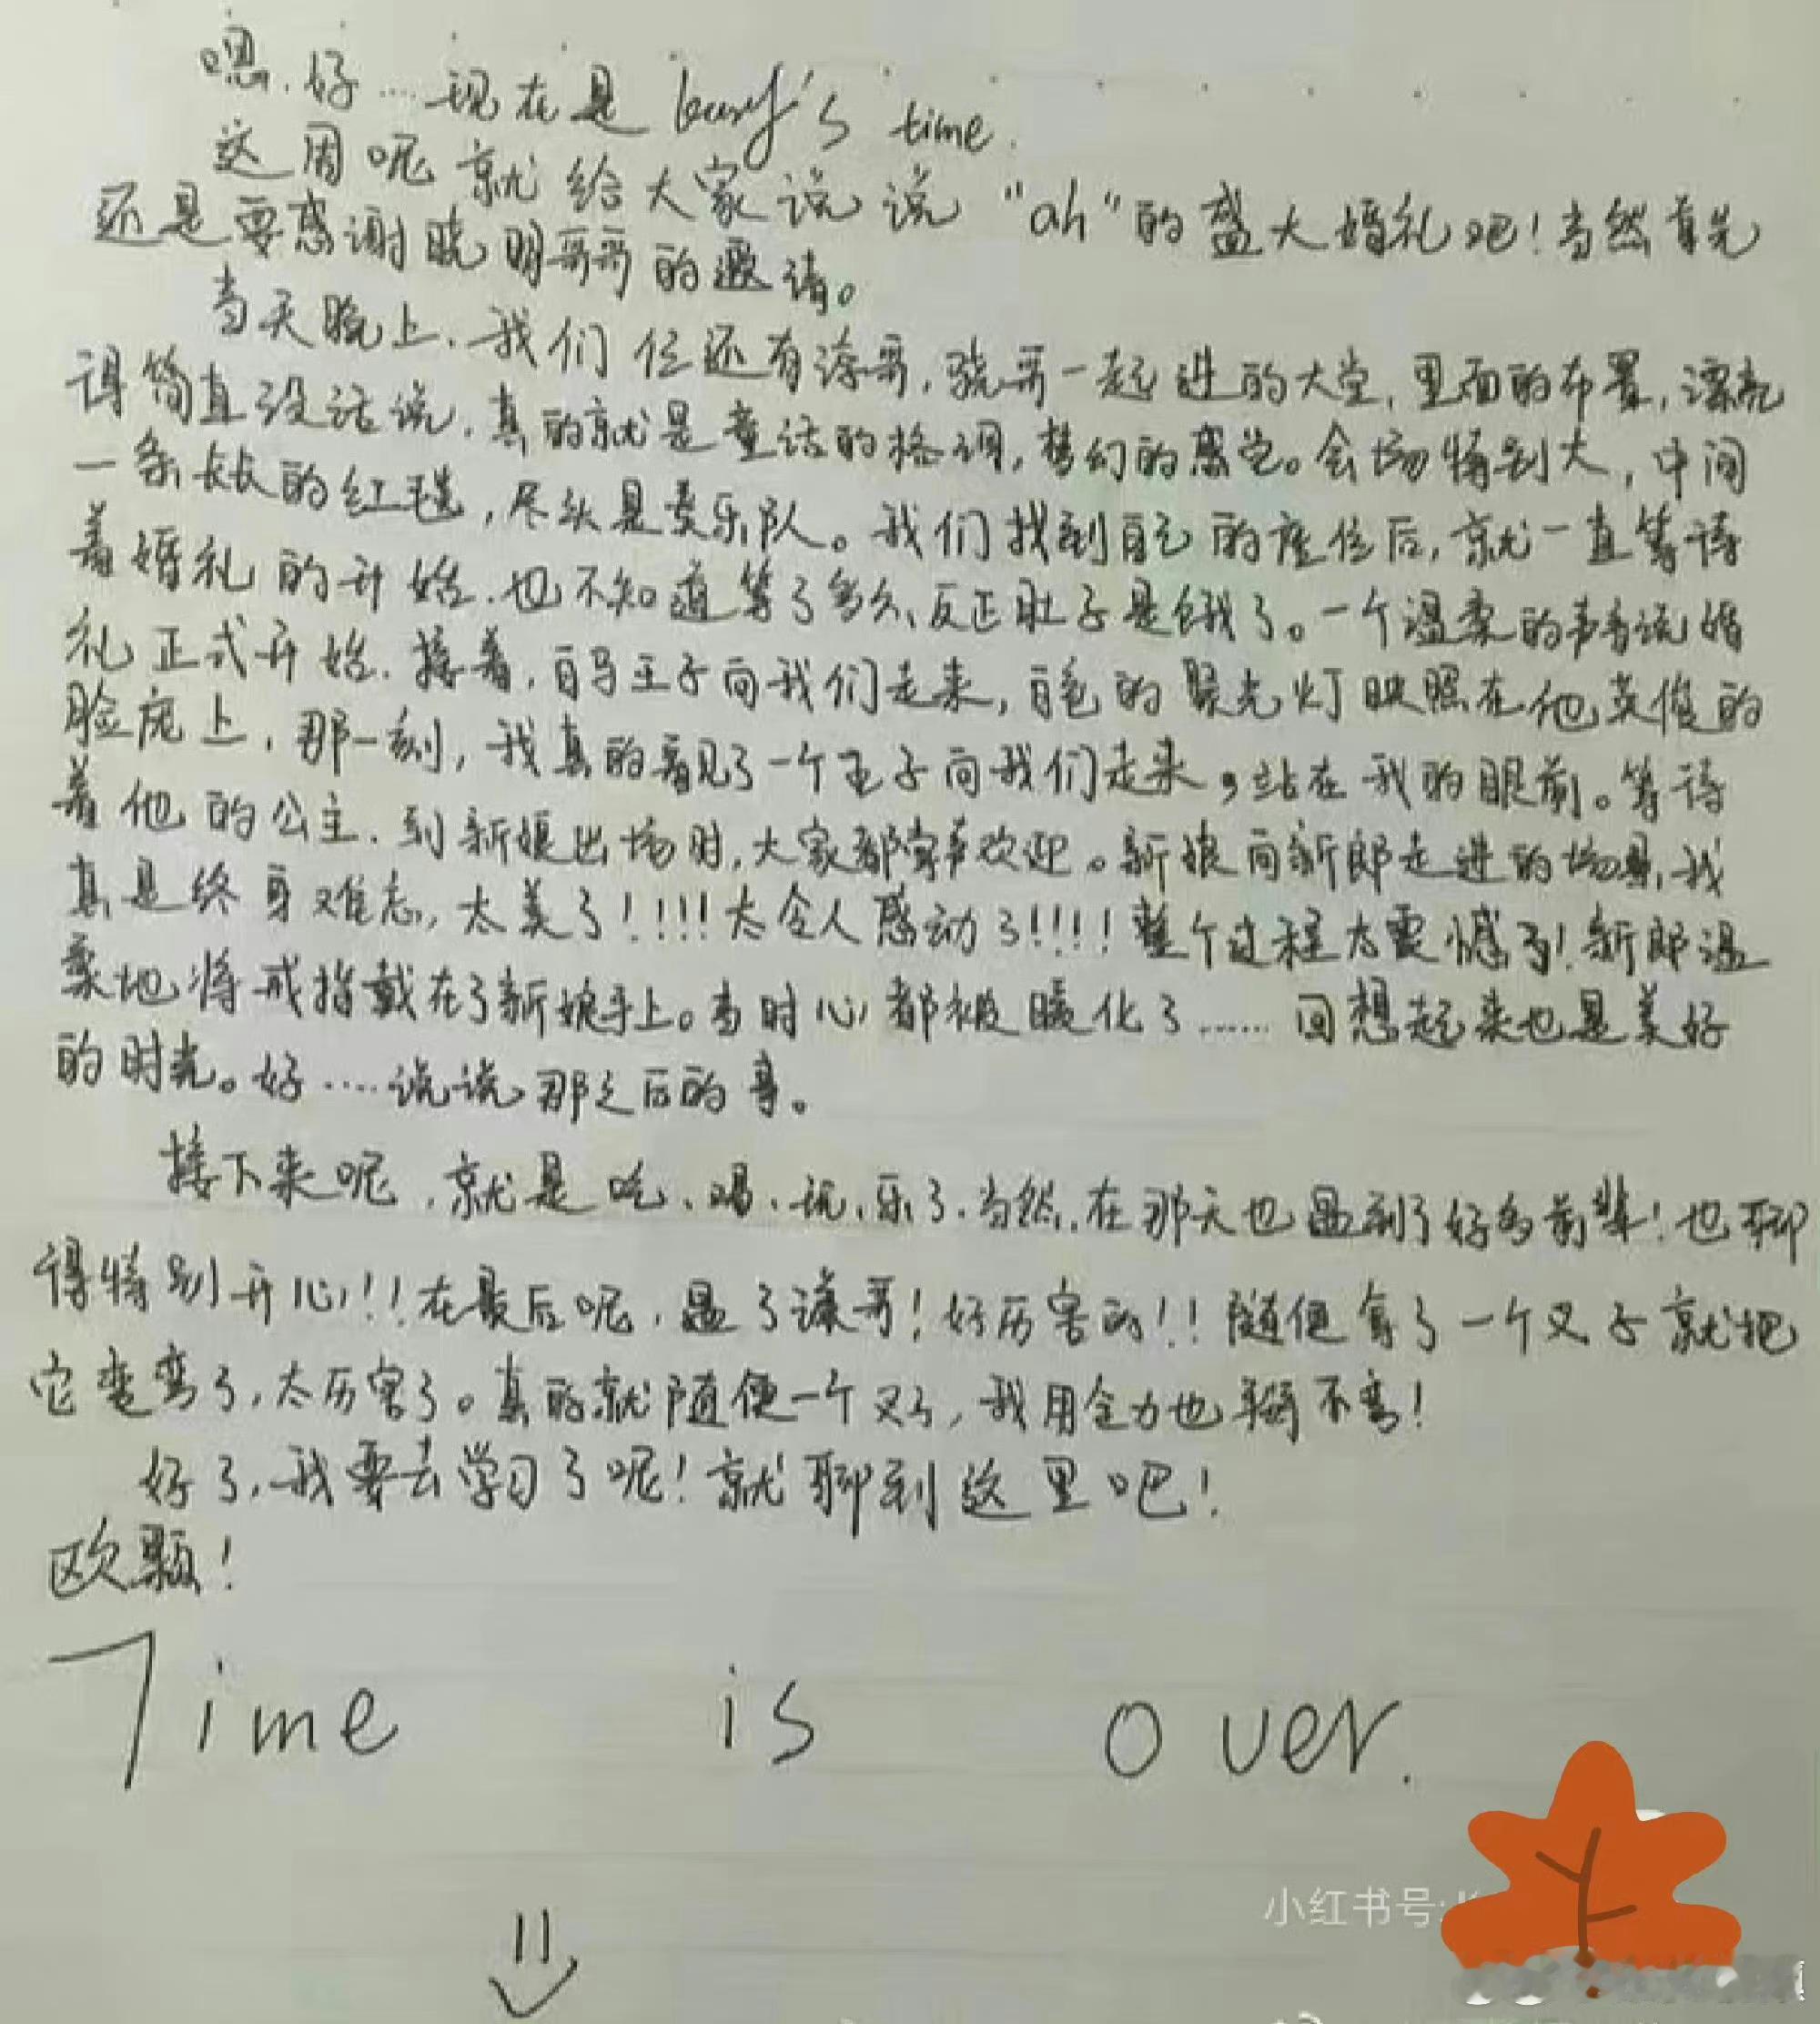 嗯.好....现在是 karry's time.
这周呢就给大家说说“ah”的盛大婚礼吧!当然首先
还是要感谢晓明哥哥的邀请。
当天晚上.我们 位还有涛哥,骁哥一起进的大堂,里面的布置,漂亮
得简直没话说.真的就是童话的格调,梦幻的感觉。会场特别大,中间
一条长长的红毯,尽头是奏乐队。我们找到自己的座位后,就一直等待
着婚礼的开始.也不知道等了多久、反正肚子是饿了。一个温柔的声音说婚
礼正式开始.接着,白马王子向我们走来,白色的聚光灯映照在他英俊的
脸庞上,那一刻,我真的看见了一个王子向我们走来,站在我的眼前。等待
着他的公主.到新娘出场时,大家都掌声欢迎。新娘向新郎走进的场景,我
真是终身难忘,太美了!!!!太令人感动了!!!!整个过程太震憾了!新郎温
柔地将戒指戴在了新娘手上。当时心都被暖化了......回想起来也是美好
的时光。好....说说那之后的事。
接下来呢,就是吃、喝、玩、乐了.当然,在那天也遇到了好多前辈!也聊
得特别开心!!在最后呢,遇了谦哥!好厉害的!!随便拿了一个叉子就把
它弯弯了,太厉害了。真的就随便一个叉子,我用全力也掰不弯!
好了,我要去学习了呢!就聊到这里吧!
欧颗!
Time is over.
小红书号: